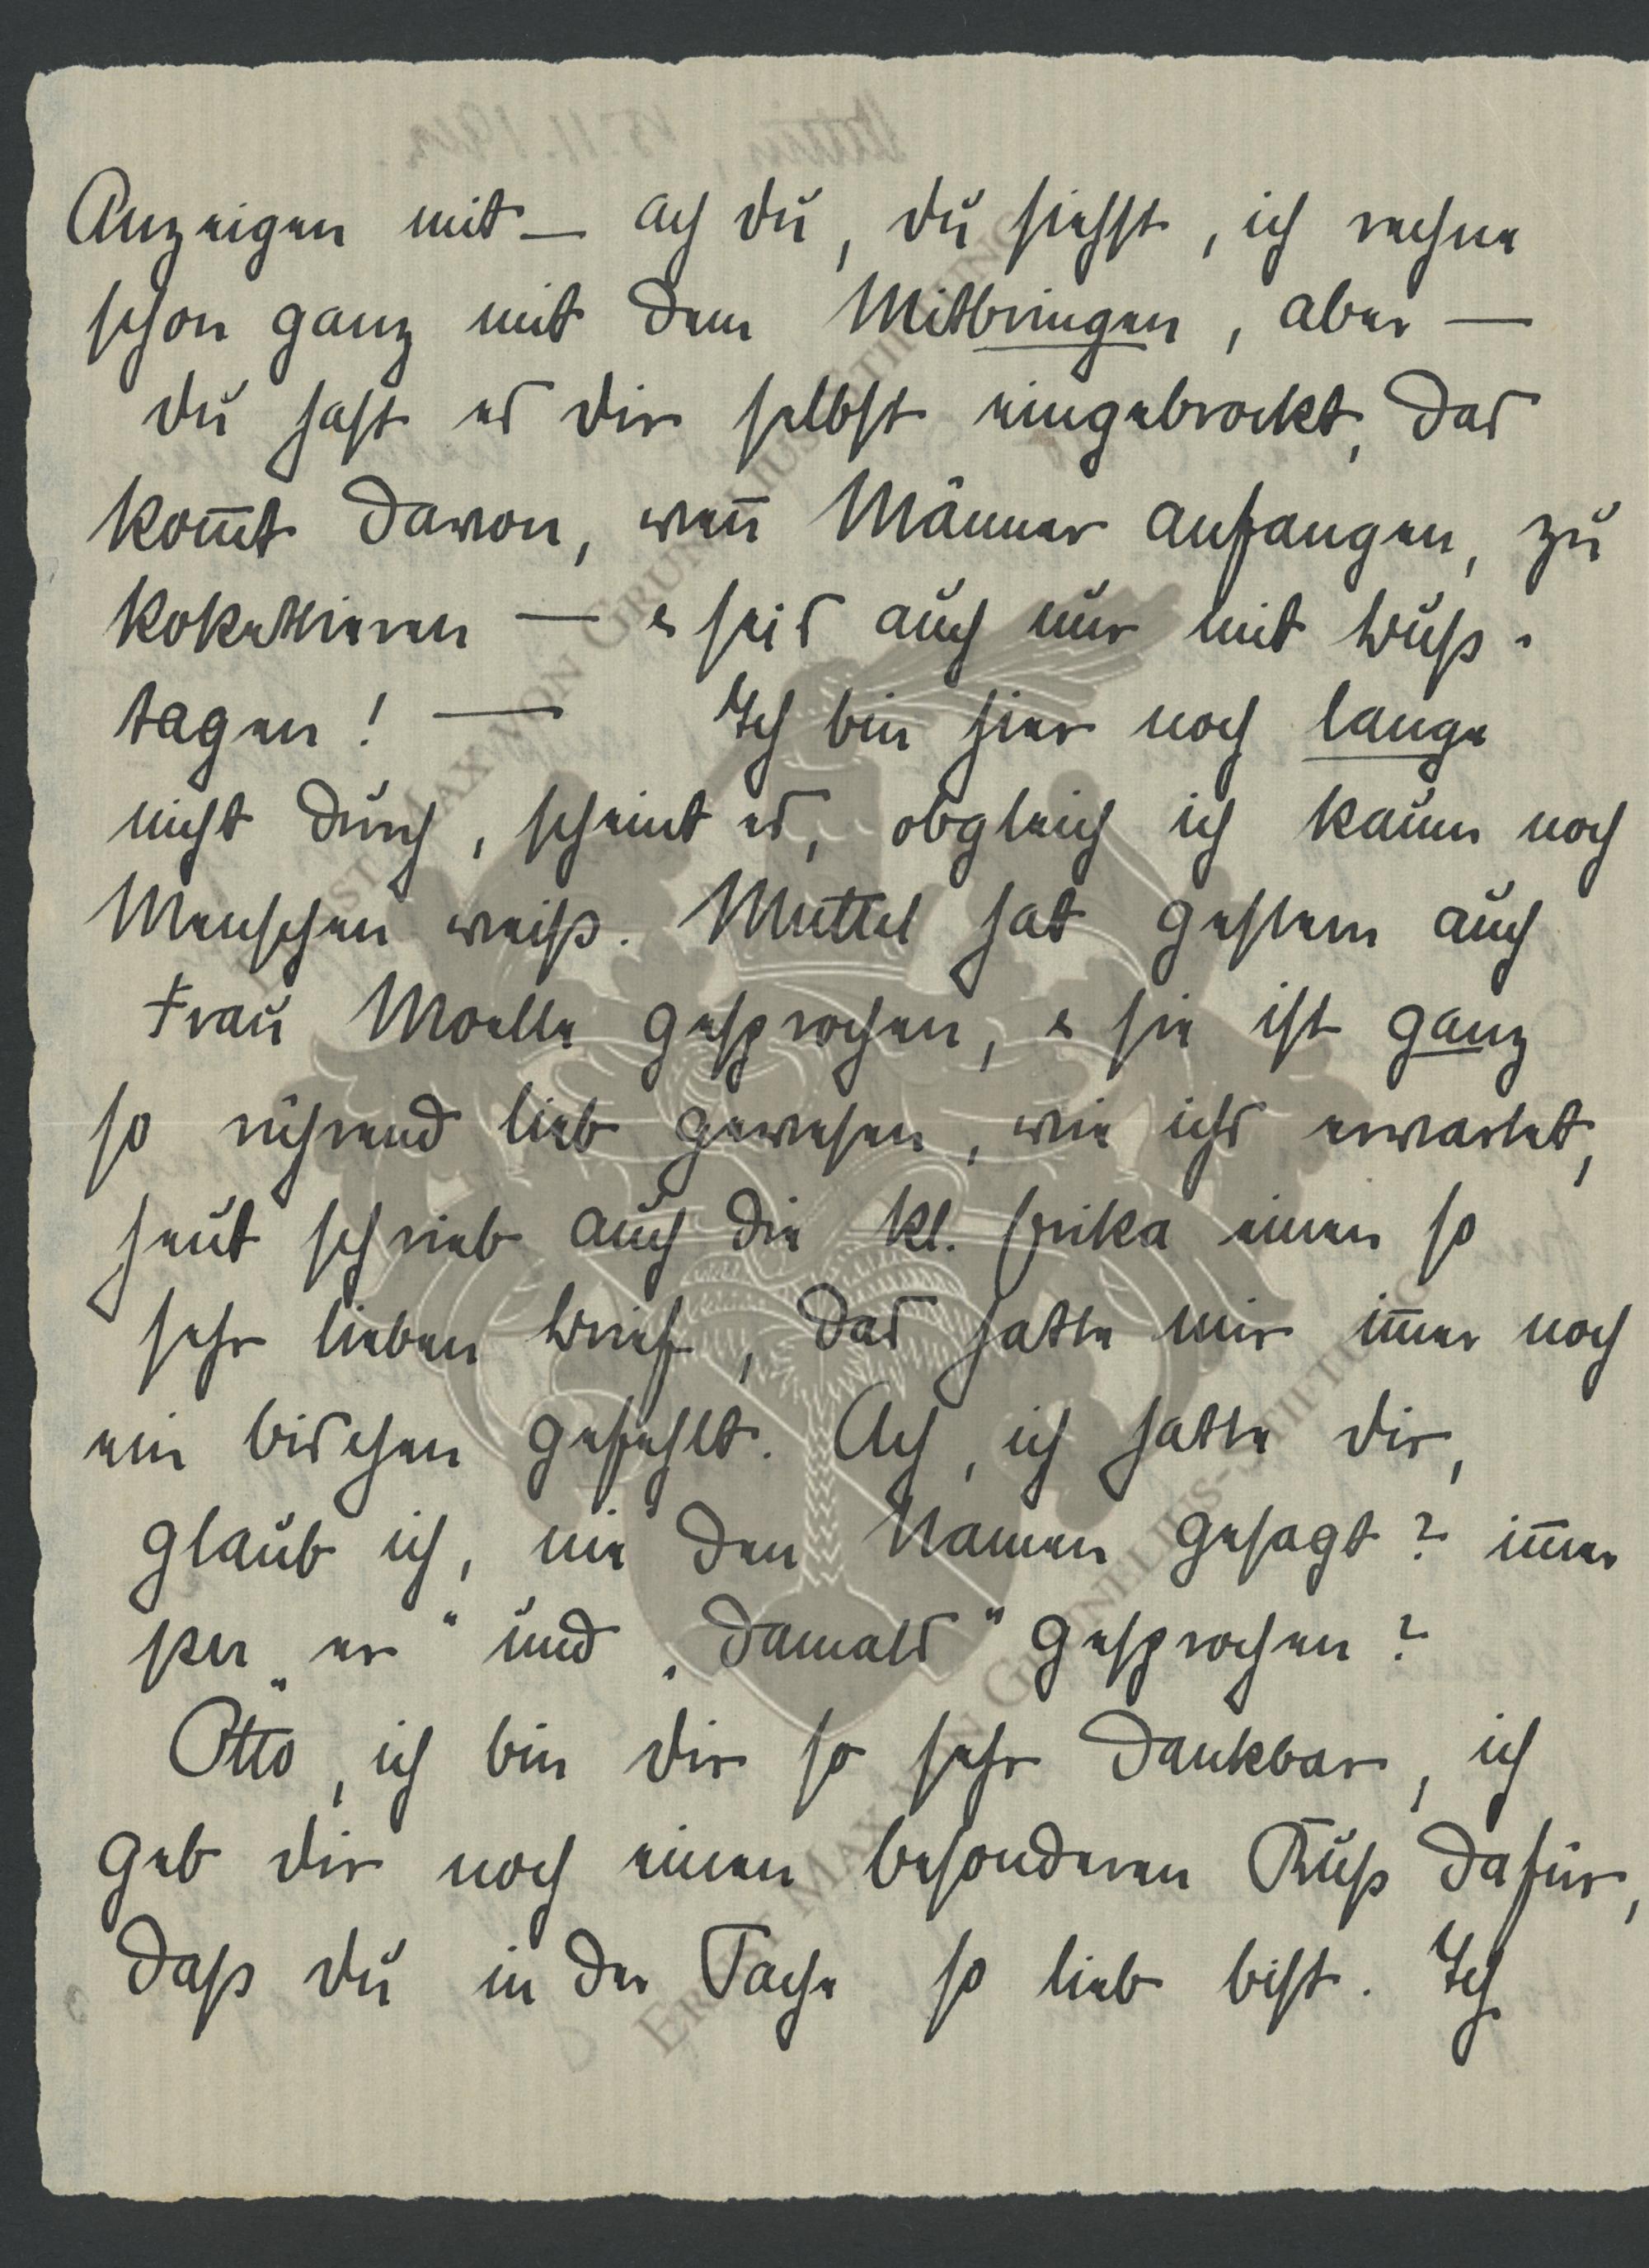 Anzeigen mit — ach du, du siehst, ich rechne
schon ganz mit dem Mitbringen, aber —
du hast es dir selbst eingebrockt, das
kom̅t davon, wen̅ Männer anfangen, zu
kokettieren — & seis auch nur mit Buß-
tagen! — Ich bin hier noch lange
nicht durch, scheint es, obgleich ich kaum noch
Menschen weiß. Muttel hat gestern auch
Frau Moelle gesprochen, & sie ist ganz
so rührend lieb gewesen, wie ichs erwartet,
heut schrieb auch die kl. Erika einen so
sehr lieben Brief, das hatte mir im̅er noch
ein bischen gefehlt. Ach, ich hatte dir,
glaub ich, nie den Namen gesagt? im̅er
per „er“ und „damals“ gesprochen?
Otto, ich bin dir so sehr dankbar, ich
geb dir noch einen besonderen Kuß dafür,
daß du in der Sache so lieb bist. Ich
ERNST MAX VON GRUNELIUS-STIFTUNG
ERNST MAX VON GRUNELIUS-STIFTUNG